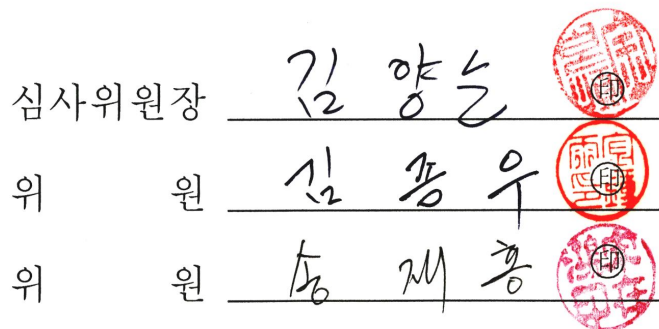 심사위원장 김 양 ㊞
위 원 김 종 우 ㊞
위 원 송 재 홍 ㊞